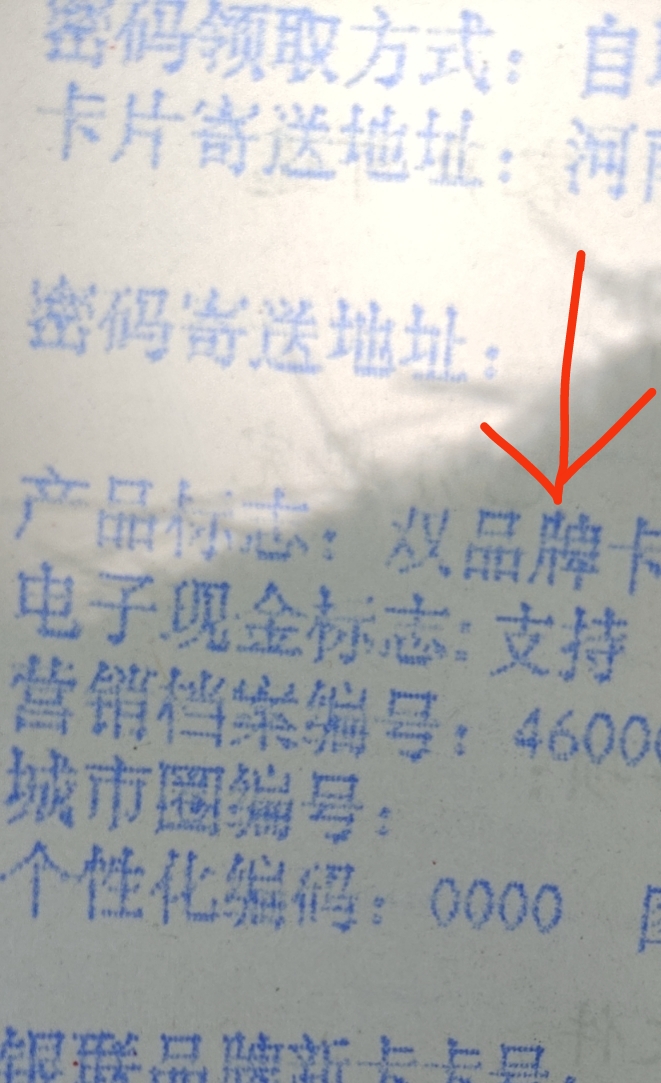 密码领取方式：自
卡片寄送地址：河南
密码寄送地址：
产品标志：双品牌卡
电子现金标志：支持
营销档案编号：46000
城市圈编号：
个性化编码：0000
银联品牌新卡卡号：